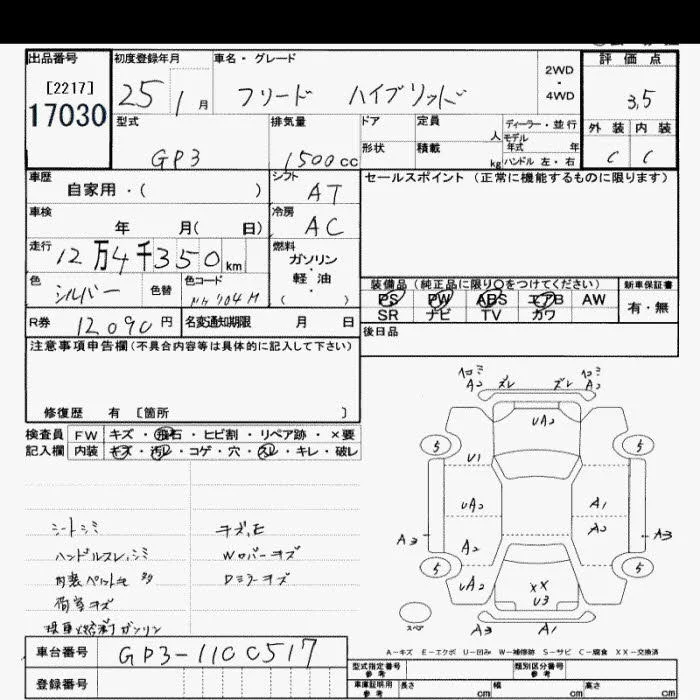 出品番号
[2217]
17030
初度登録年月
25 1月
車名・グレード
フリード ハイブリッド
2WD
・
4WD
評価点
3,5
外装 内装
C C
型式
GP3
排気量
1500cc
ドア
形状
定員
人
積載
kg
ディーラー・並行
モデル
年式 年
ハンドル 左・右
車歴
自家用・( )
シフト
AT
セールスポイント (正常に機能するものに限ります)
車検
年 月( 日)
冷房
AC
走行
12万4千350km
燃料
ガソリン
・
軽油
( )
色
シルバー
色替
色コード
NH704M
装備品 (純正品に限り○をつけてください)
PS PW ABS エアB AW
SR ナビ TV カワ
新車保証書
有・無
R券 12090円
名変通知期限 月 日
後日品
注意事項申告欄(不具合内容等は具体的に記入して下さい)
修復歴 有 [箇所 ]
検査員
記入欄
FW キズ・飛石・ヒビ割・リペア跡・×要
内装 キズ・汚レ・コゲ・穴・スレ・キレ・破レ
シートシミ
ハンドルスレ、シミ
内装ペットモ 多
荷室キズ
Wロバーキズ
Dミラーキズ
ガンリン
ヘコミ
A2
ズレ
ズレ
ヘコミ
A2
UA2
5
5
U1
UA2
A1
A2
A3
A3
A2
5
5
UA2
XX
U3
スペア
A3
A1
A-キズ E-エクボ U-凹み W-補修跡 S-サビ C-腐食 XX-交換済
車台番号 GP3-1100517
登録番号
型式指定番号
参考
類別区分番号
参考
車庫証明用
参考
長さ cm
幅 cm
高さ cm